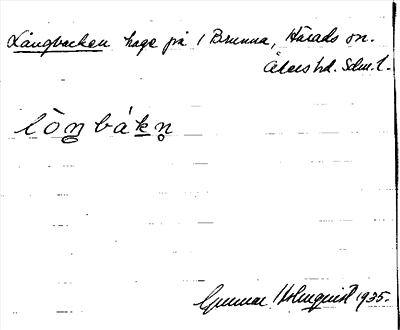 Långbacken hage på 1 Brunna, Härads sn.
Åkers hd. Sdm. l.
lòn̠bákn̥
Gunnar Holmquist 1935.